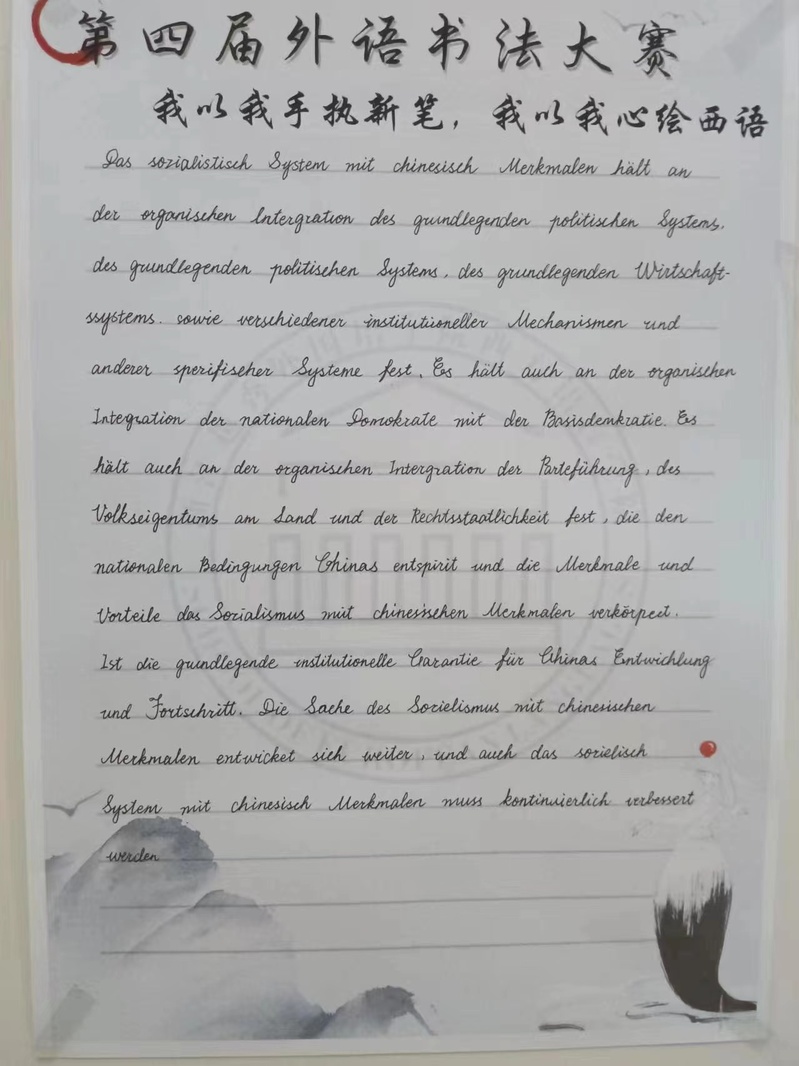 第四届外语书法大赛
我以我手执新笔，我以我心绘西语
Das sozialistisch System mit chinesisch Merkmalen hält an
der organischen Intergration des grundlegenden politischen Systems.
des grundlegenden politischen Systems, des grundlegenden Wirtschaft-
ssystems. sowie verschiedener institutioneller Mechanismen und
anderer sperifischer Systeme fest. Es hält auch an der organischen
Integration der nationalen Domokrate mit der Basisdemkratie. Es
hält auch an der organischen Intergration der Parteführung, des
Volkseigentums am Land und der Rechtsstaatlichkeit fest, die den
nationalen Bedingungen Chinas entspirit und die Merkmale und
Vorteile das Sozialismus mit chinesischen Merkmalen verkörpert.
Ist die grundlegende institutionelle Garantie für Chinas Entwichlung
und Fortschritt. Die Sache des Sozielismus mit chinesischen
Merkmalen entwicket sich weiter, und auch das sozielisch
System mit chinesisch Merkmalen muss kontinuierlich verbessert
werden